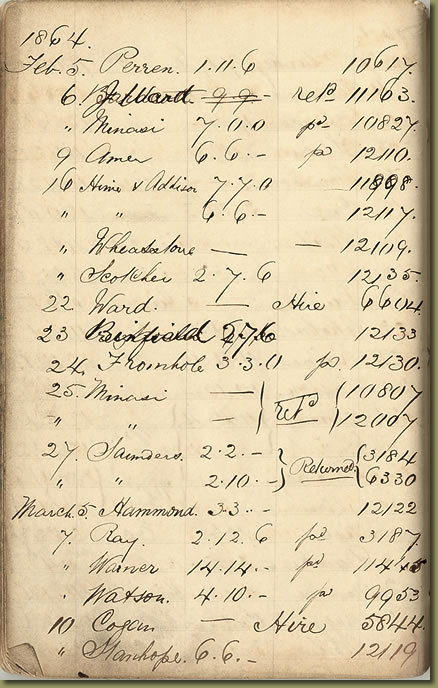 1864.
Feb. 5. Perren. 1.11.6 10617.
6. 9.9.- retd 11163.
" Minasi 7.0.0 pd 10827.
9 Amer 6.6.- pd 12110.
16 Hime & Addison 7.7.0
" " 6.6.- 12117.
" Wheatstone — — 12109.
" Scotcher 2.7.6 12135.
22. Ward. — Hire 6604.
23 Binfield 2.7.6 12133
24. Fromhole 3.3.0 pd. 12130.
25. Minasi — } retd { 10807
" " — 12007.
27. Saunders. 2.2.- } Returned { 3184
" 2.10.- 6330
March. 5. Hammond. 33.- 12122
7. Ray. 2.12.6 pd 3187.
" Warner 14.14.- pd
" Watson. 4.10.- pd 9953
10 Cogan — Hire 5844.
" Stanhope. 6.6.- 12119